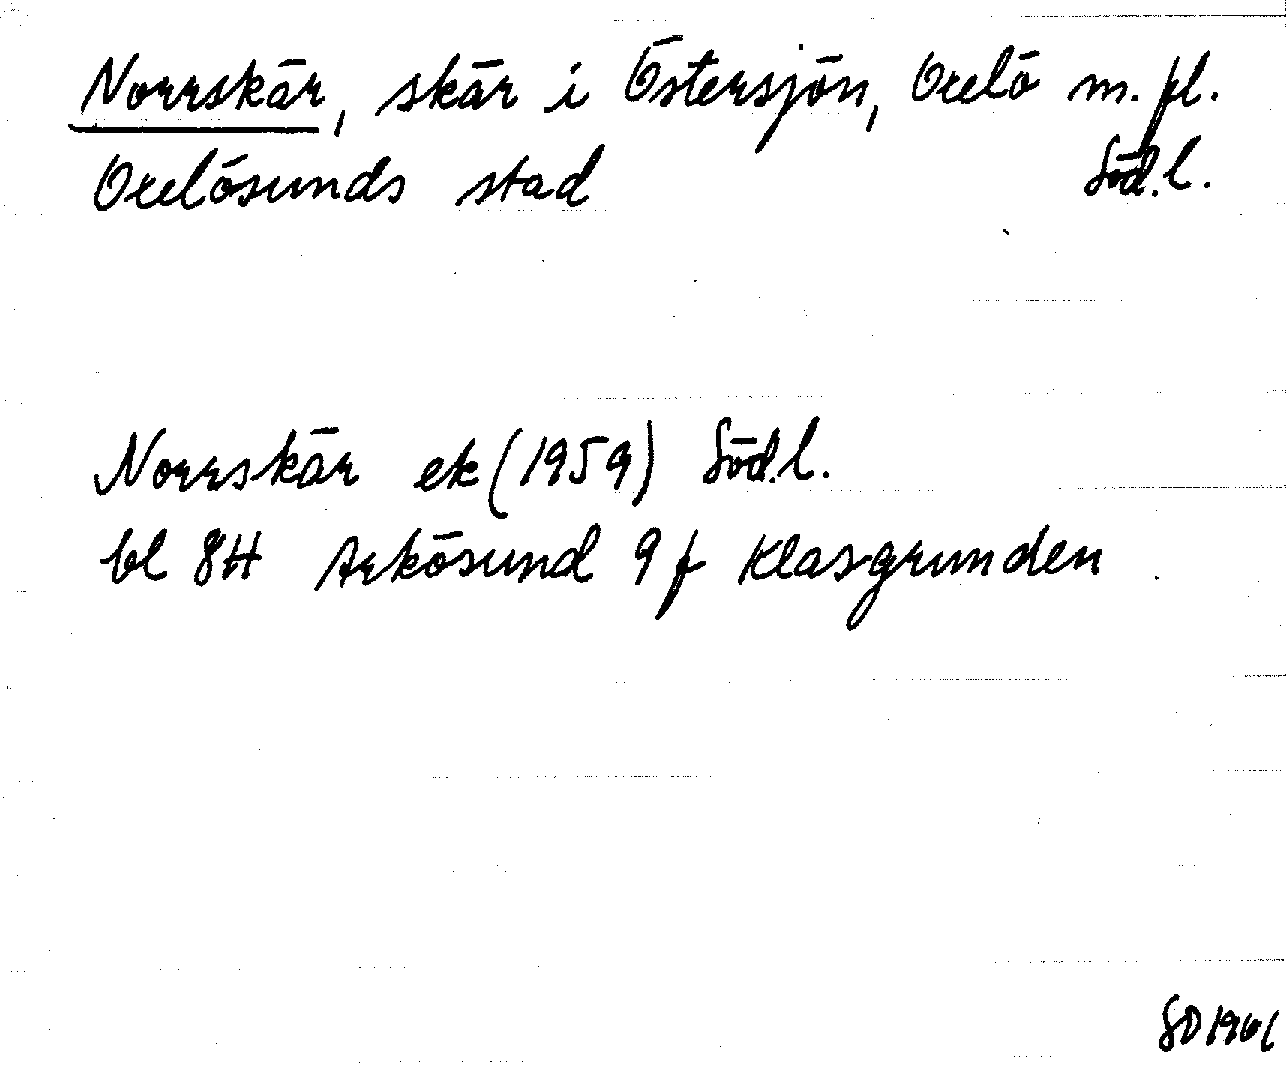 Norrskär, skär i Östersjön, Oxelö m. fl.
Oxelösunds stad Söd.l.
Norrskär ek (1959) Söd.l.
bl 8H Arkösund 9 f Klasgrunden
SD 1961